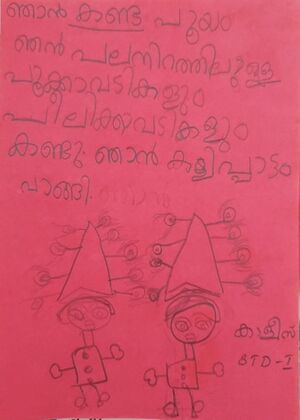 ഞാൻ കണ്ട പൂയം
ഞൻ പലനിറത്തിലുള്ള
പൂക്കാവടികളും
പീലിക്കാവടികളും
കണ്ടു. ഞാൻ കളിപ്പാട്ടം
വാങ്ങി.
STD-I